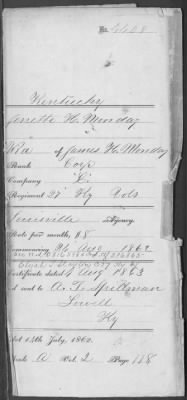 No. 6608
Kentucky
Jerette H. Monday
Ra of James H. Monday
Rank Corp
Company "E"
Regiment 27" Ky Vols
Louisville Agency.
Rate per month, $8
Commencing 26 Aug 1862
Certificate dated 4 Aug 1863
and sent to A. T. Spillman
Lowell
Ky
Act 14th July, 1862.
Book A Vol. 2 Page 118